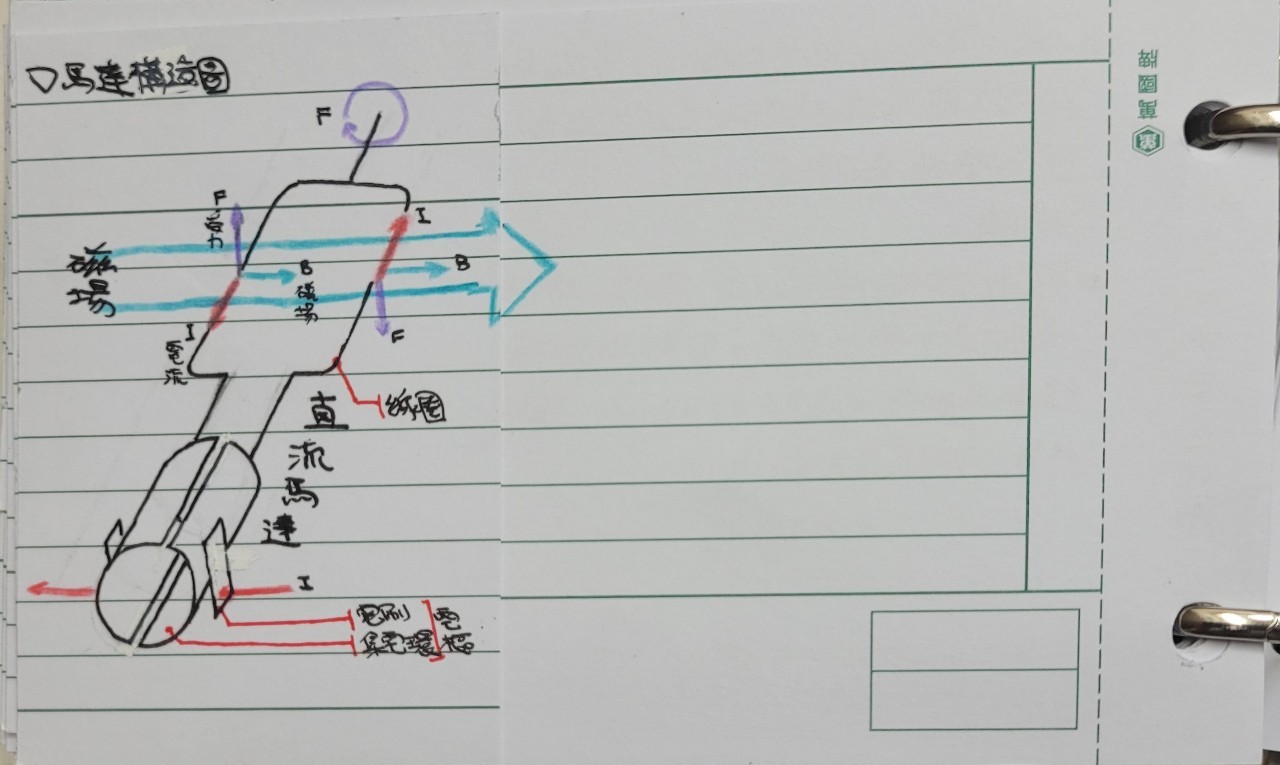 馬達構造圖
F
F
磁力
I
磁場
B
磁場
B
I
電流
F
線圈
直流馬達
I
電刷
集電環
電樞
萬國牌